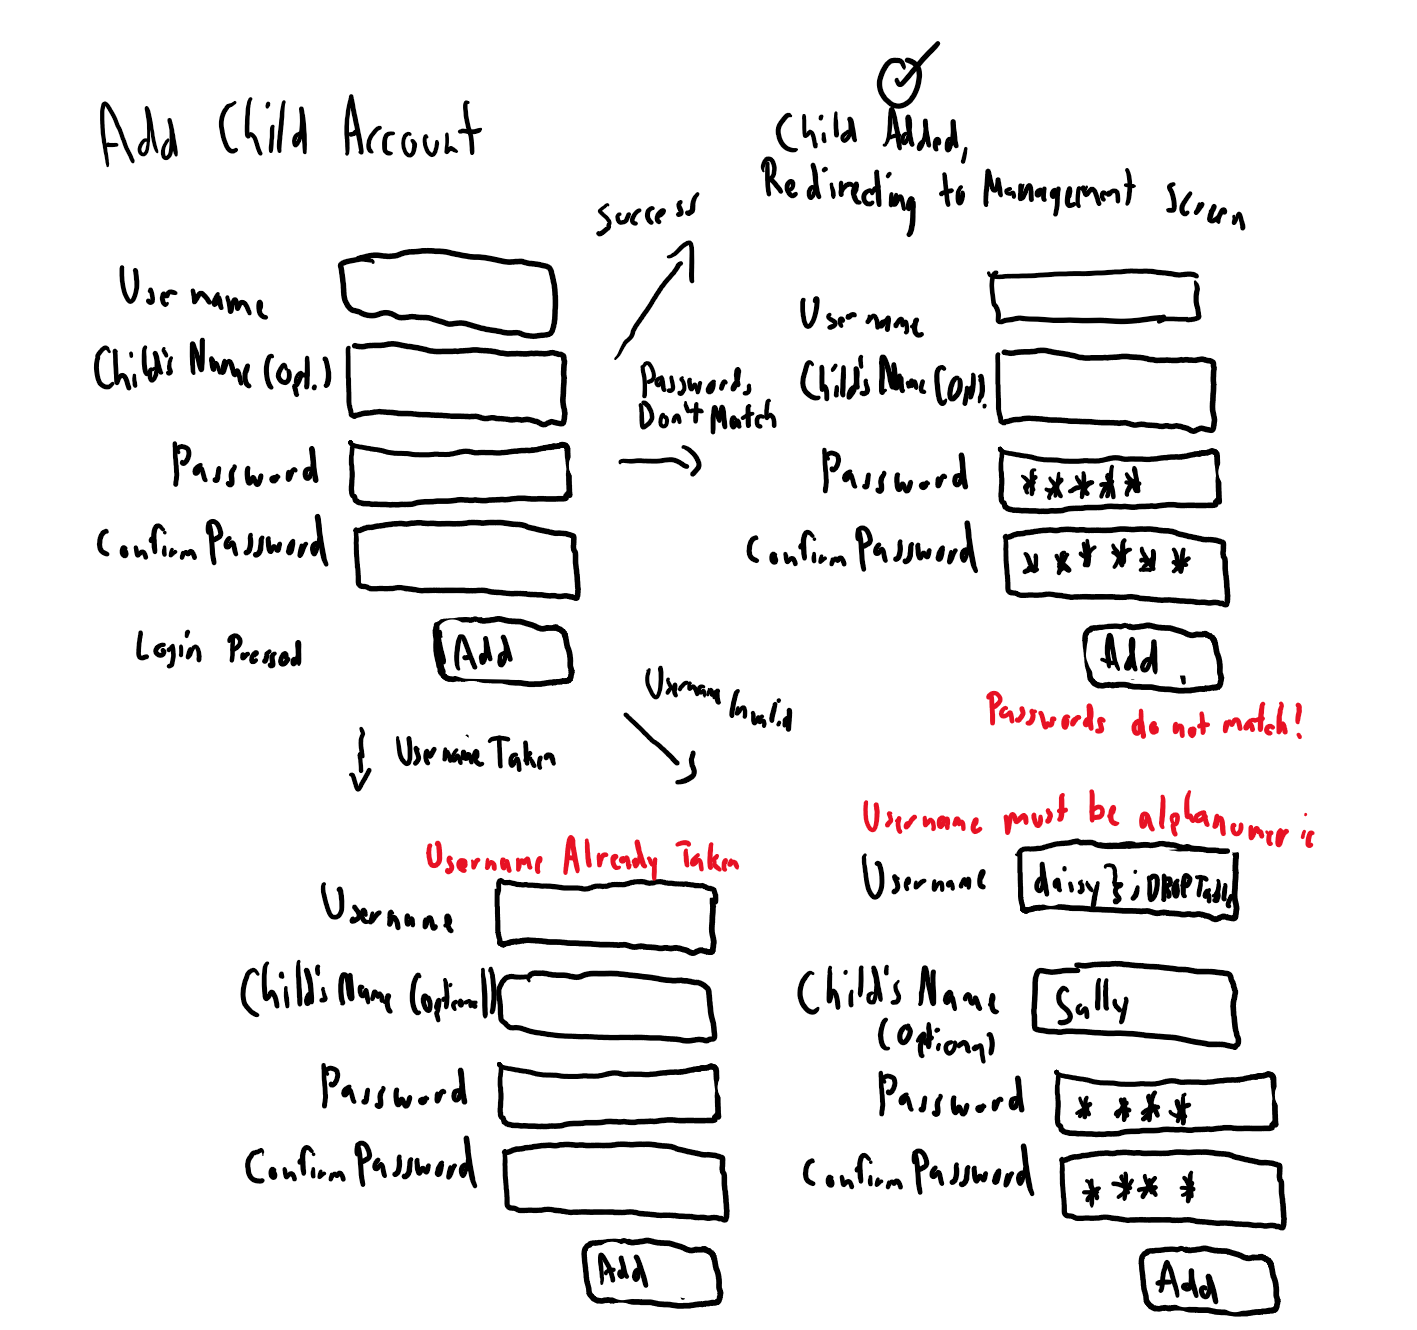 Add Child Account
Username
Child's Name (opt.)
Password
Confirm Password
Login Pressed
Add
Success
Child Added,
Redirecting to Management Screen
Passwords
Don't Match
Username
Child's Name (Opt).
Password
*****
Confirm Password
******
Add
Passwords do not match!
Username Taken
Username Already Taken
Username
Child's Name (optional)
Password
Confirm Password
Add
Username Invalid
Username must be alphanumeric
Username
daisy}; DROP Table
Child's Name
(Optional)
Sally
Password
****
Confirm Password
****
Add